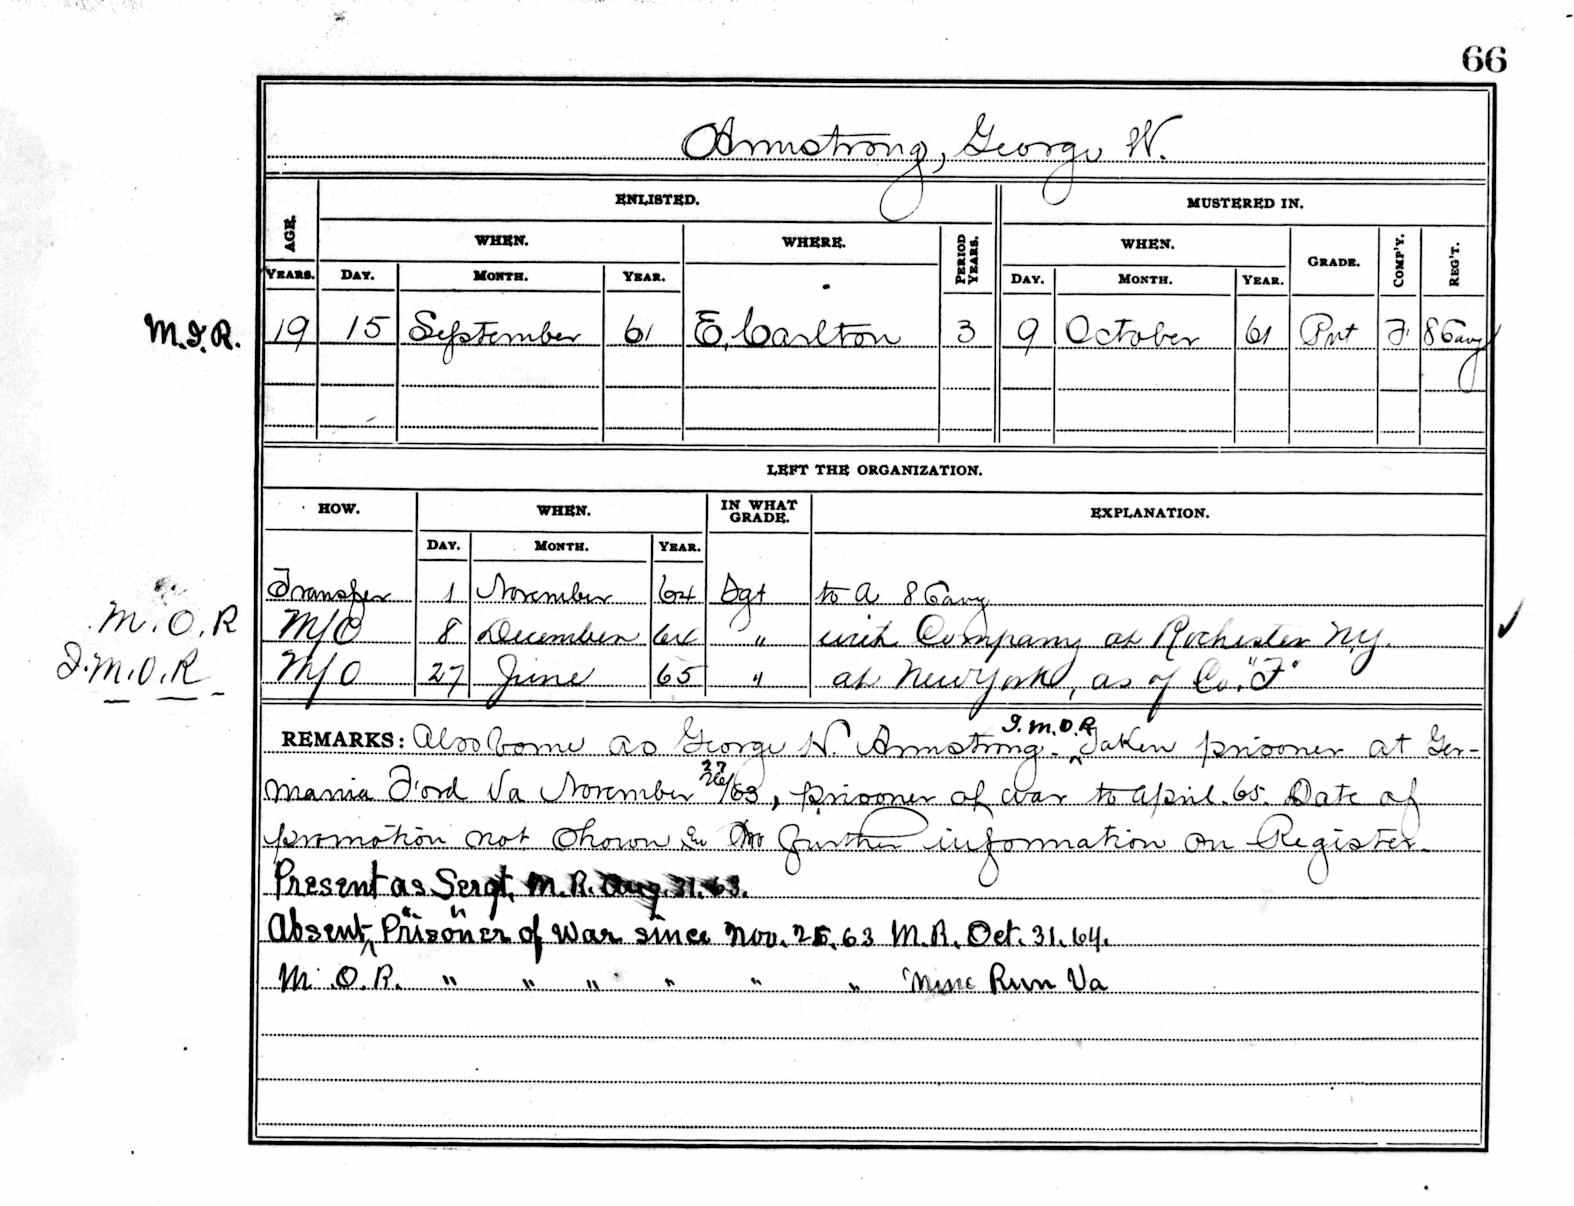 66
Armstrong, George W.
ENLISTED. MUSTERED IN.
AGE. WHEN. WHERE. PERIOD YEARS. WHEN. GRADE. COMP'Y. REG'T.
YEARS. DAY. MONTH. YEAR. DAY. MONTH. YEAR.
M.I.R. 19 15 September 61 E. Carlton 3 9 October 61 Pvt F 8 Cavy
LEFT THE ORGANIZATION.
HOW. WHEN. IN WHAT GRADE. EXPLANATION.
DAY. MONTH. YEAR.
Transfer 1 November 64 Sgt to A 8 Cavy
M.O.R M/O 8 December 64 " with Company at Rochester N.Y.
I.M.O.R M/O 27 June 65 " at New York, as of Co. "F"
I.M.O.R
REMARKS: Also borne as George H. Armstrong. Taken prisoner at Ger-
27
mania Ford Va November 26/63, prisoner of war to April. 65. Date of
promotion not shown No further information on Register.
Present as Sergt. M.R. Aug. 31. 63.
" "
Absent Prisoner of War since Nov. 63 M.R. Oct. 31. 64.
M.O.R. " " " " " " Mine Run Va